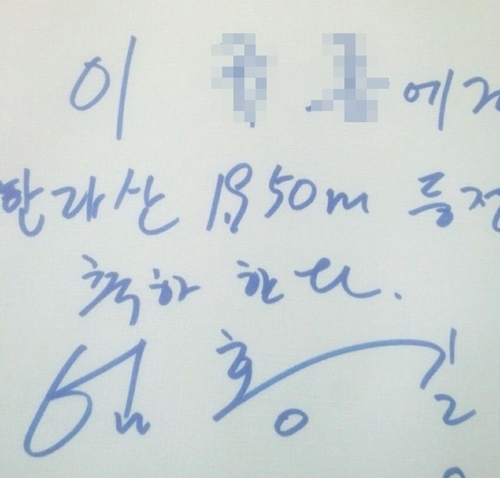 이 에게
한라산 1950m 등정
축하 한다.
엄홍길